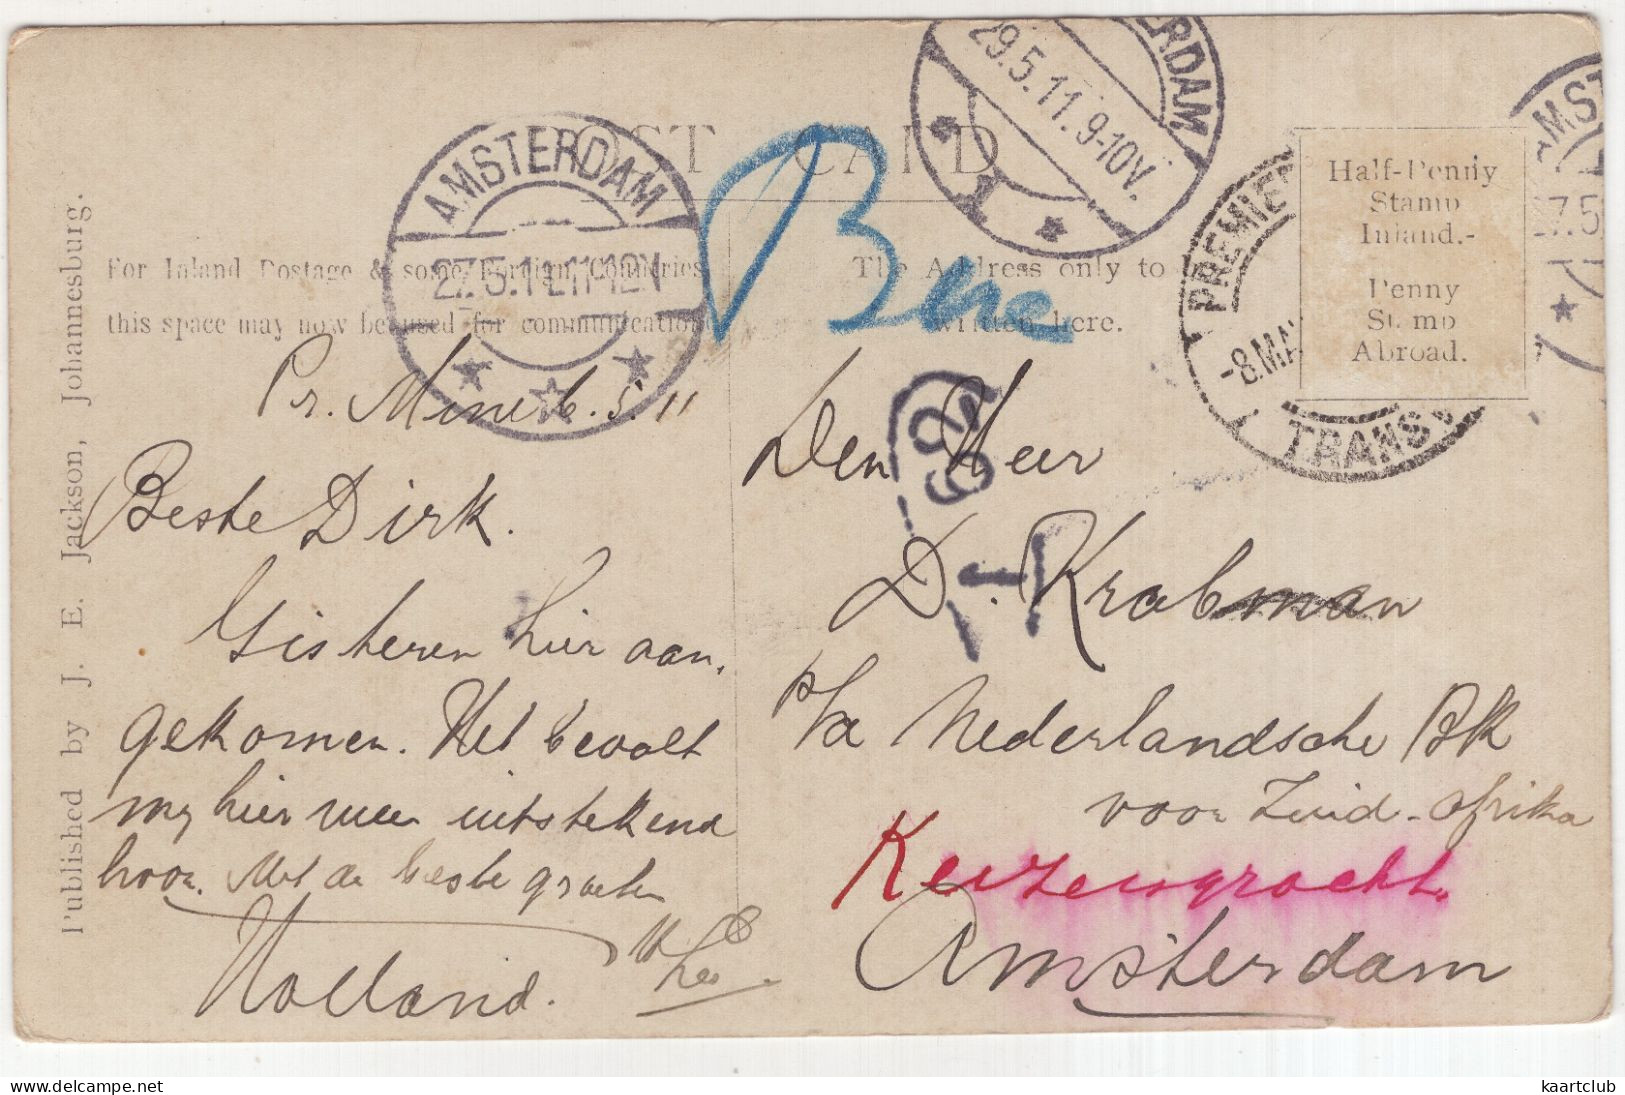 POST CARD
Published by J. E. Jackson, Johannesburg.
For Inland Postage & some Foreign Countries
this space may now be used for communication
The Address only to
written here.
Half-Penny
Stamp
Inland.-
Penny
Stamp
Abroad.
AMSTERDAM
27.5.11.11-12V
ERDAM
29.5.11.9-10V.
1
PREMIE
-8.MA
TRANSV
AMST
27.5
Bne
T
Pr. Mine 6.5.11
Beste Dirk.
Gisteren hier aan.
gekomen. Het bevalt
my hier weer uitstekend
hoor. Met de beste groeten
Holland.
Den Heer
D. Krabman
p/a Nederlandsche Bk
voor Zuid-Afrika
Keizersgracht.
Amsterdam
kaartclub